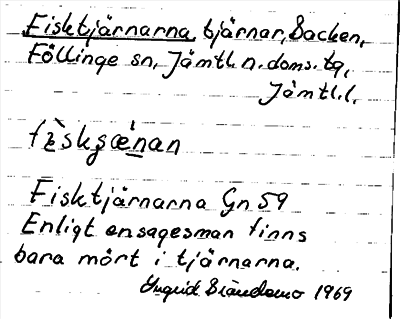 Fisktjärnarna, tjärnar, Backen,
Föllinge sn, Jämtl. n. doms. tg,
Jämtl. l.
fìskʂæ̀nan
Fisktjärnarna Gn 59
Enligt en sagesman finns
bara mört i tjärnarna.
Ingrid 1969